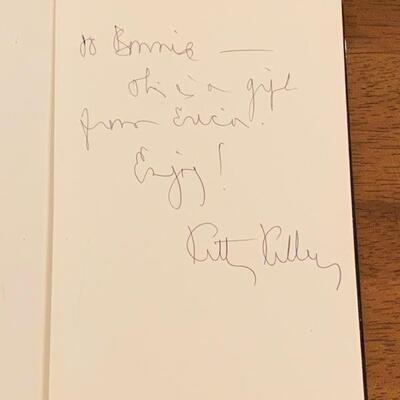 to Bonnie —
this is a gift
from Erica.
Enjoy!
Kitty Kelley